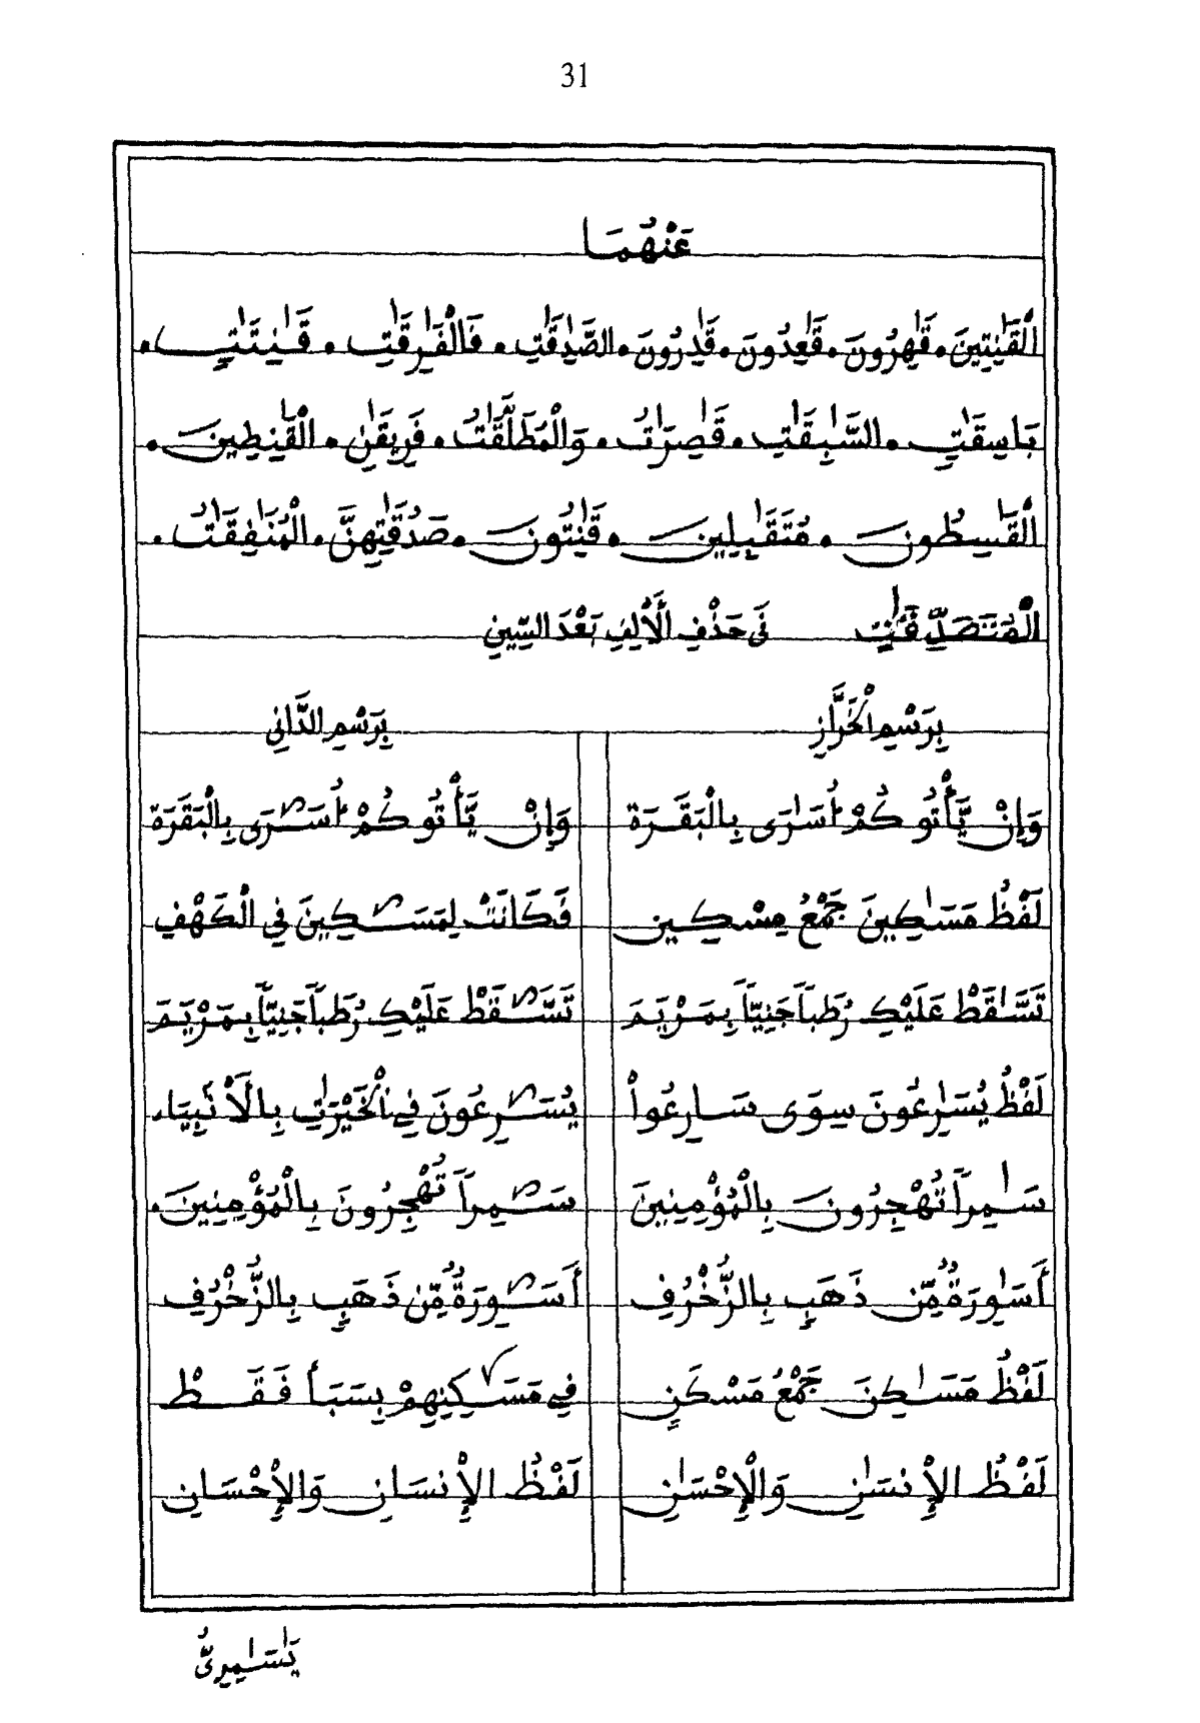 31
عَنْهُمَا
اَ۬لْقَٰنِتِينَ • قَٰهِرُونَ • قَٰعِدُونَ • قَٰدِرُونَ • الصَّٰدِقَٰتِ • فَالْفَٰرِقَٰتِ • قَٰنِتَٰتٍ •
بَاسِقَٰتٍ • السَّٰبِقَٰتِ • قَٰصِرَٰتُ • وَالْمُطَلَّقَٰتُ • فَرِيقَٰنِ • الْقَٰنِطِينَ •
الْقَٰسِطُونَ • مُتَقَٰبِلِينَ • قَٰنِتُونَ • صَدُقَٰتِهِنَّ • الْمُنَٰفِقَٰتُ •
الْمُتَصَدِّقَٰتِ فِي حَذْفِ الْأَلِفِ بَعْدَ السِّينِ
بِرَسْمِ الْخَرَّازِ بِرَسْمِ الدَّانِي
وَإِنْ يَّأْتُوكُمْ أُسَٰرَى بِالْبَقَرَةِ وَإِنْ يَّأْتُوكُمْ أُسَرَى بِالْبَقَرَةِ
لَفْظُ مَسَٰكِينَ جَمْعُ مِسْكِينٍ فَكَانَتْ لِمَسَكِينَ فِي الْكَهْفِ
تَسَّٰقَطْ عَلَيْكِ رُطَباً جَنِيّاً بِمَرْيَمَ تَسَّقَطْ عَلَيْكِ رُطَباً جَنِيّاً بِمَرْيَمَ
لَفْظُ يُسَٰرِعُونَ سِوَى سَارِعُواْ يُسَرِعُونَ فِي الْخَيْرَٰتِ بِالْأَنْبِيَاءِ
سَٰمِراً تُهْجِرُونَ بِالْمُؤْمِنِينَ سَمِراً تُهْجِرُونَ بِالْمُؤْمِنِينَ •
أَسَٰوِرَةٌ مِّن ذَهَبٍ بِالزُّخْرُفِ أَسَوِرَةٌ مِّن ذَهَبٍ بِالزُّخْرُفِ
لَفْظُ مَسَٰكِنَ جَمْعُ مَسْكَنٍ فِي مَسَكِنِهِمْ بِسَبَأ فَقَطْ
لَفْظُ الْإِنسَٰنِ وَالْإِحْسَٰنِ لَفْظُ الْإِنْسَانِ وَالْإِحْسَانِ
يَٰسَٰمِرِيُّ